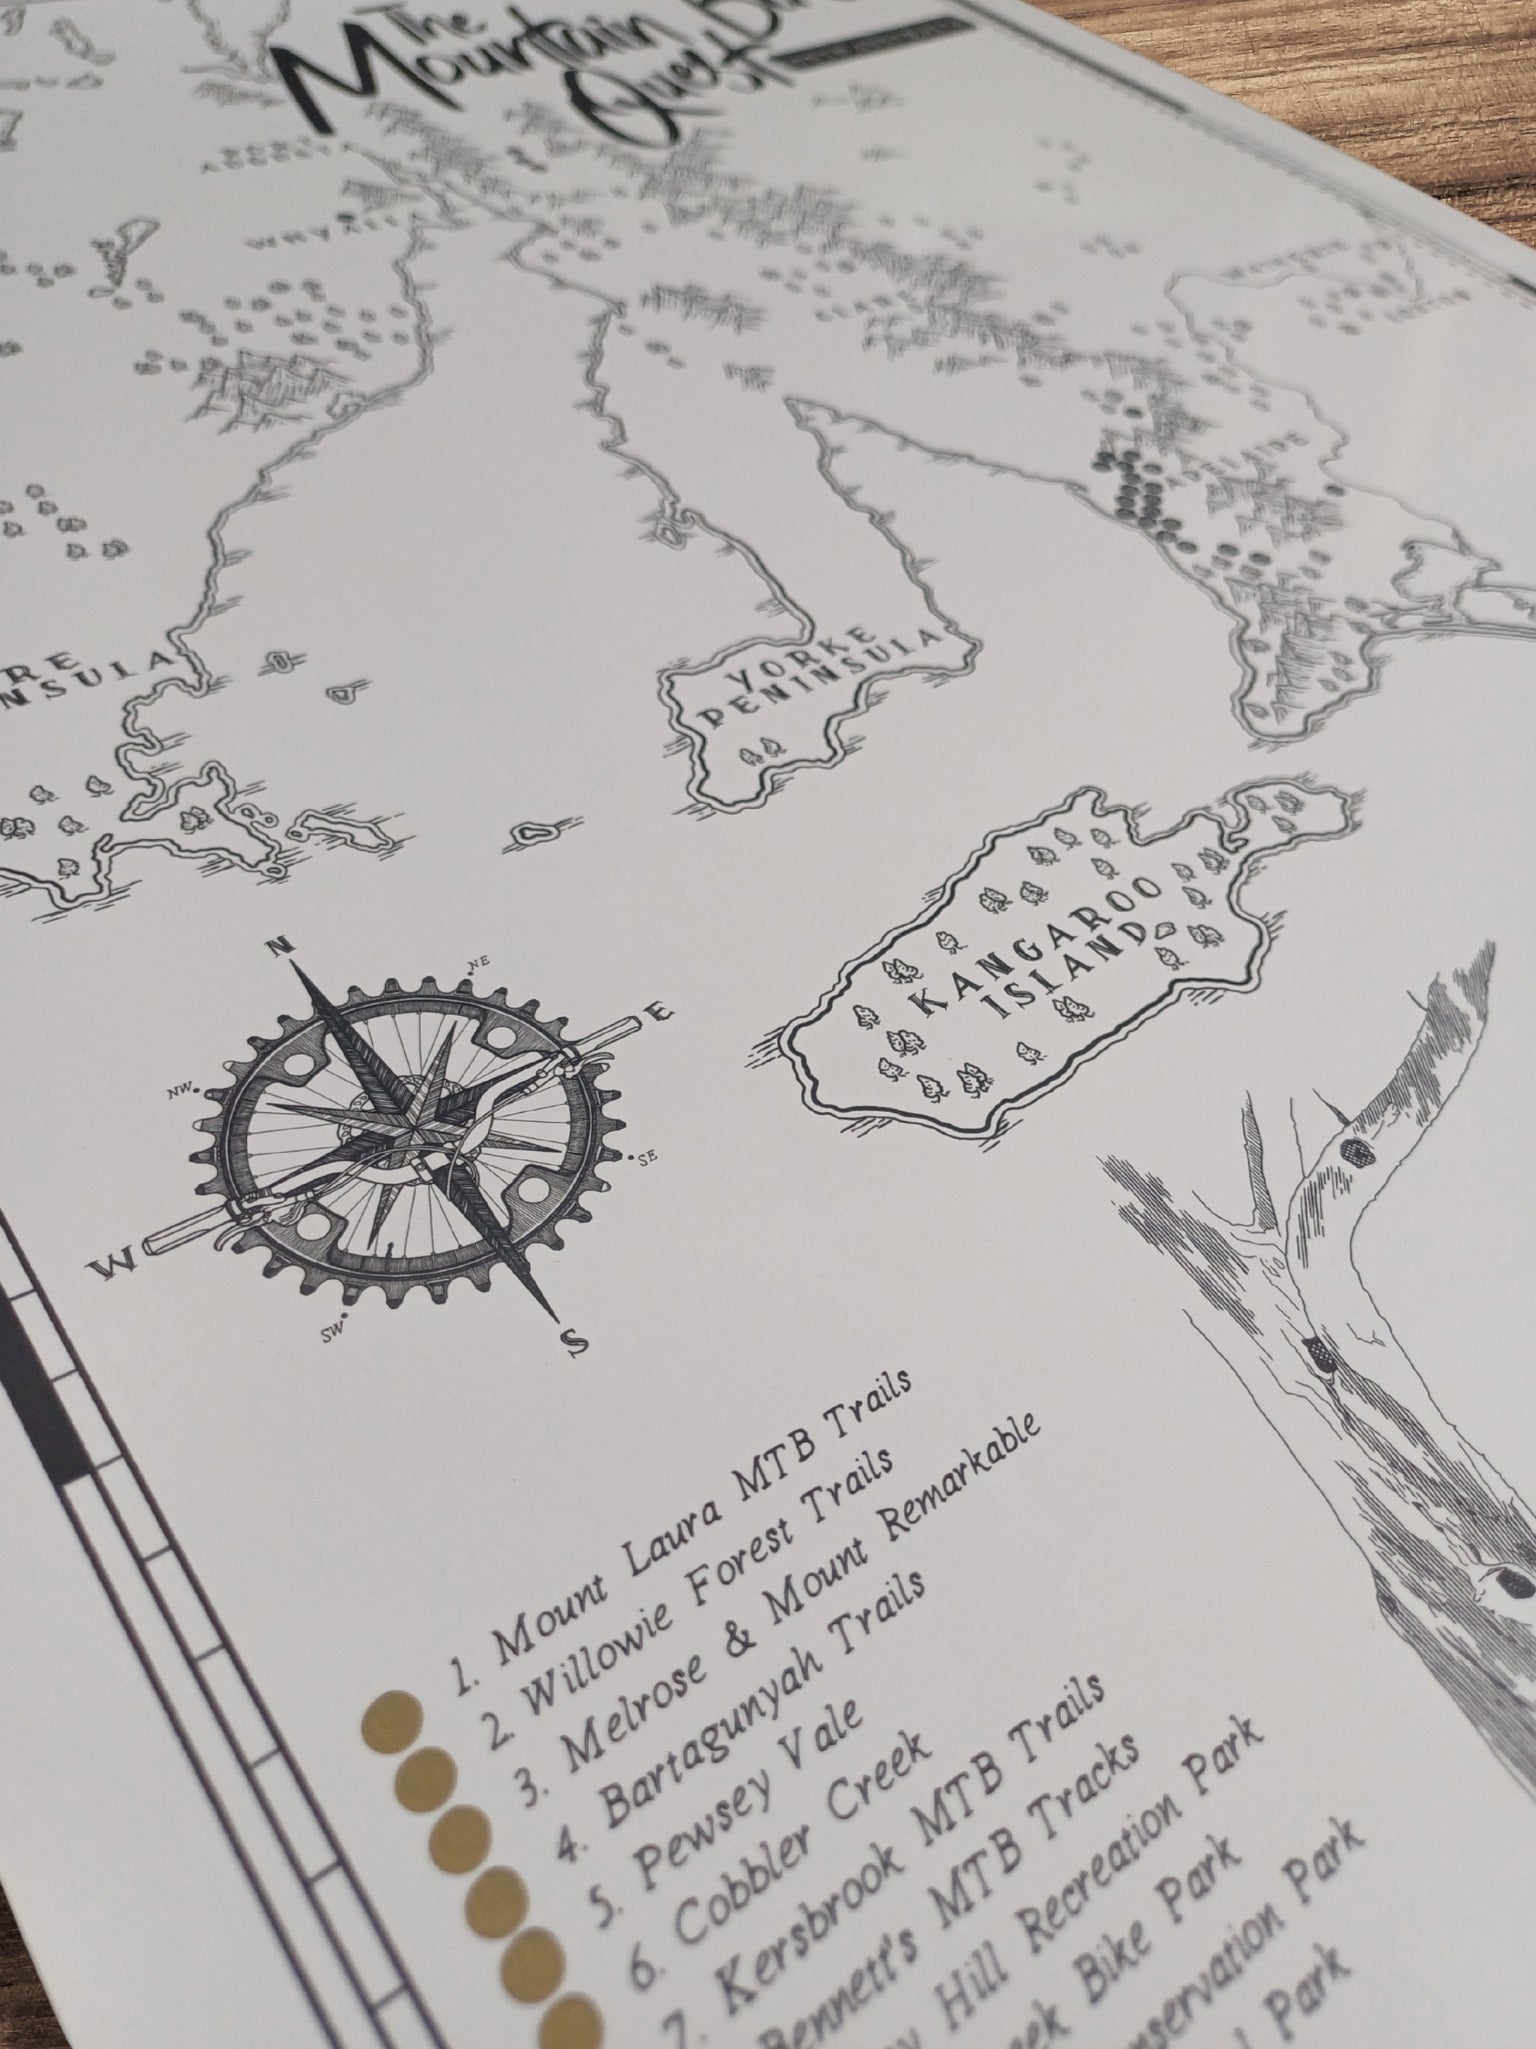 The
Mountain
Quest
AUGUSTA
WHYALLA
CLARE
ADELAIDE
NSULA
YORKE
PENINSULA
KANGAROO
ISLAND
N
NE
E
NW
SE
W
SW
S
1. Mount Laura MTB Trails
2. Willowie Forest Trails
3. Melrose & Mount Remarkable
4. Bartagunyah Trails
5. Pewsey Vale
6. Cobbler Creek
7. Kersbrook MTB Trails
Bennett's MTB Tracks
Hill Recreation Park
eek Bike Park
nservation Park
Park